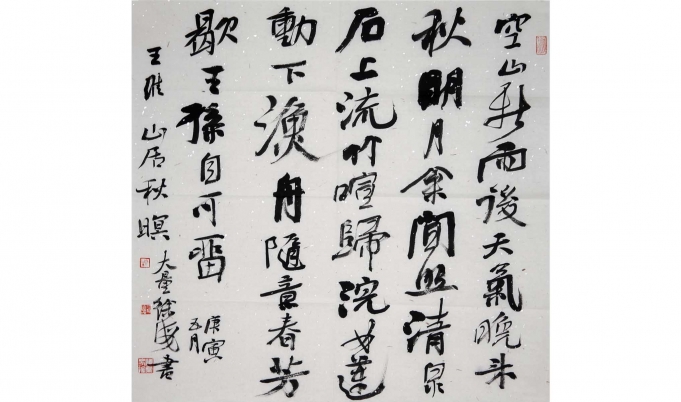 空山新雨後天氣晚來
秋明月松間照清泉
石上流竹喧歸浣女蓮
動下漁舟隨意春芳
歇王孫自可留
庚寅
五月
王維 山居秋暝 大 徐 書